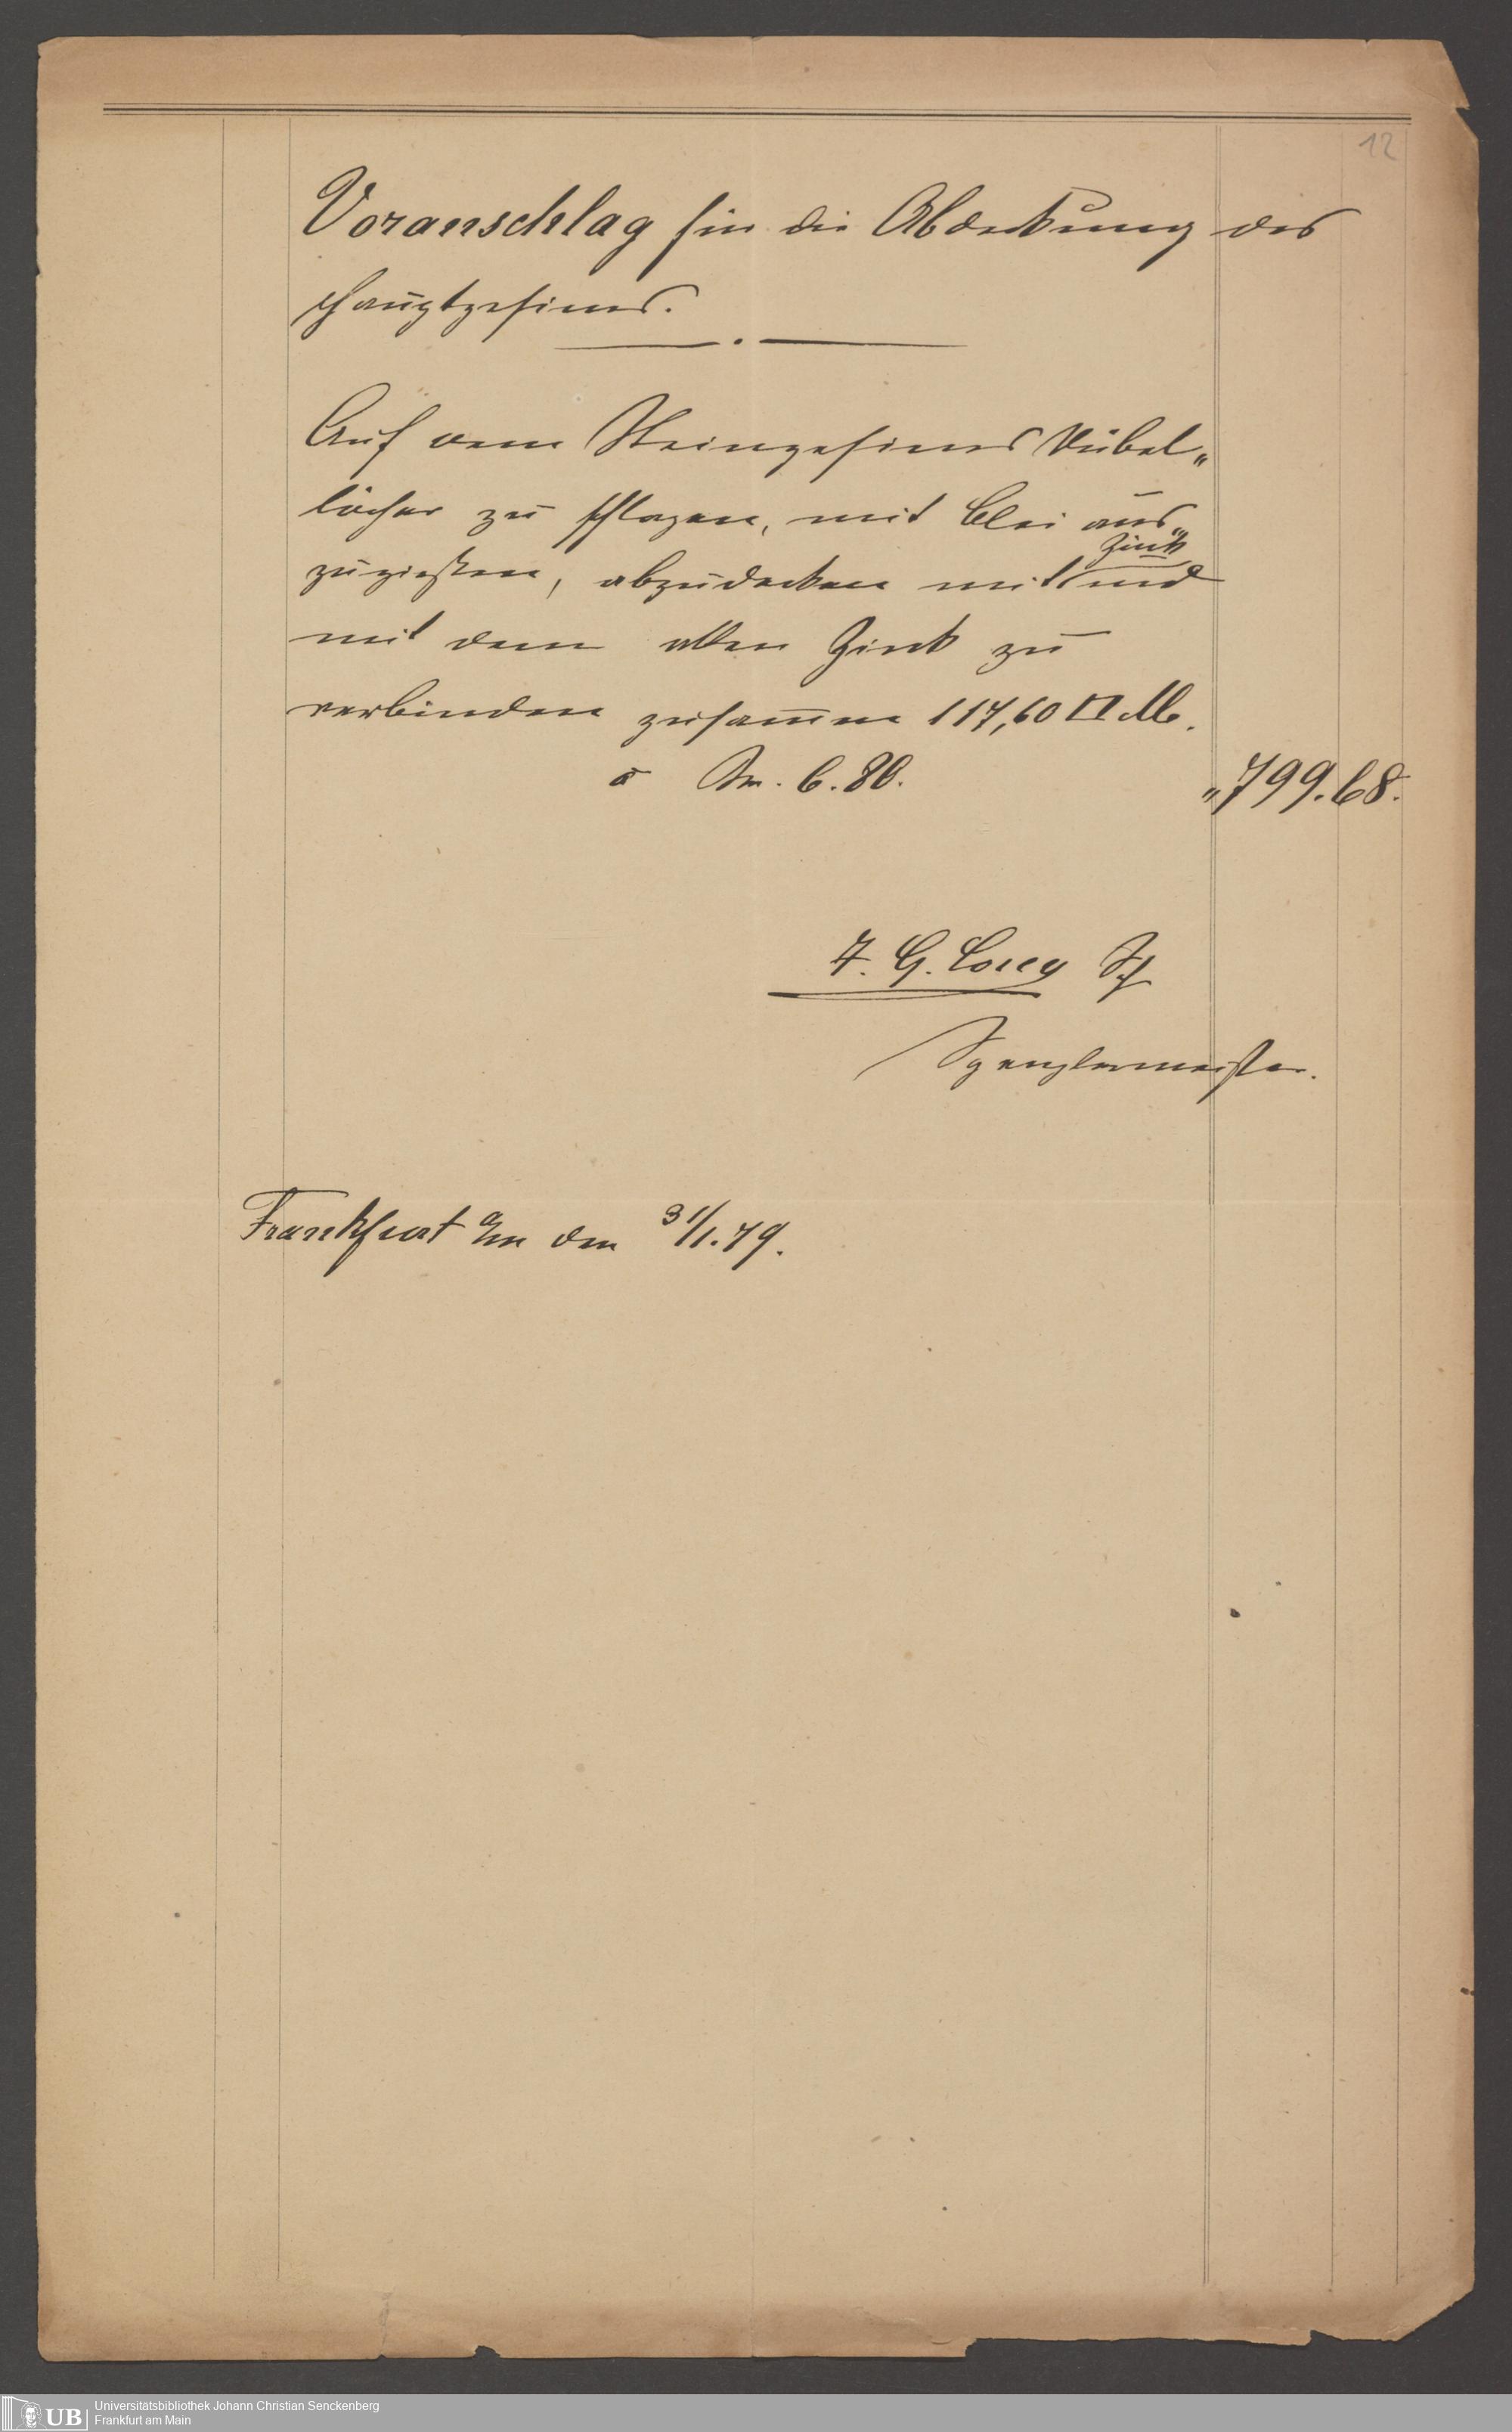 12
Voranschlag für die Abdeckung des
Hauptgesims.
Auf dem Steingesims Dübel„
löcher zu schlagen, mit Blei aus„
Zink
zugießen, abzudecken mit und
mit dem alten Zink zu
verbinden zusammen 117,60 □ M.
a M. 6.80. „799.68.
F. G.
Spenglermeister.
Frankfurt a/m den 31/1.79.
UB Universitätsbibliothek Johann Christian Senckenberg
Frankfurt am Main